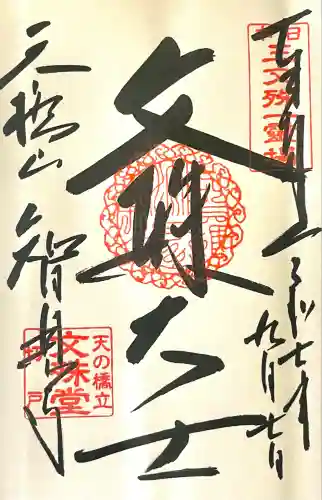 奉拝
令和七年
九月七日
文殊大士
天橋山
智恩寺
日本三文殊第一霊場
天の橋立
文殊堂
切戸